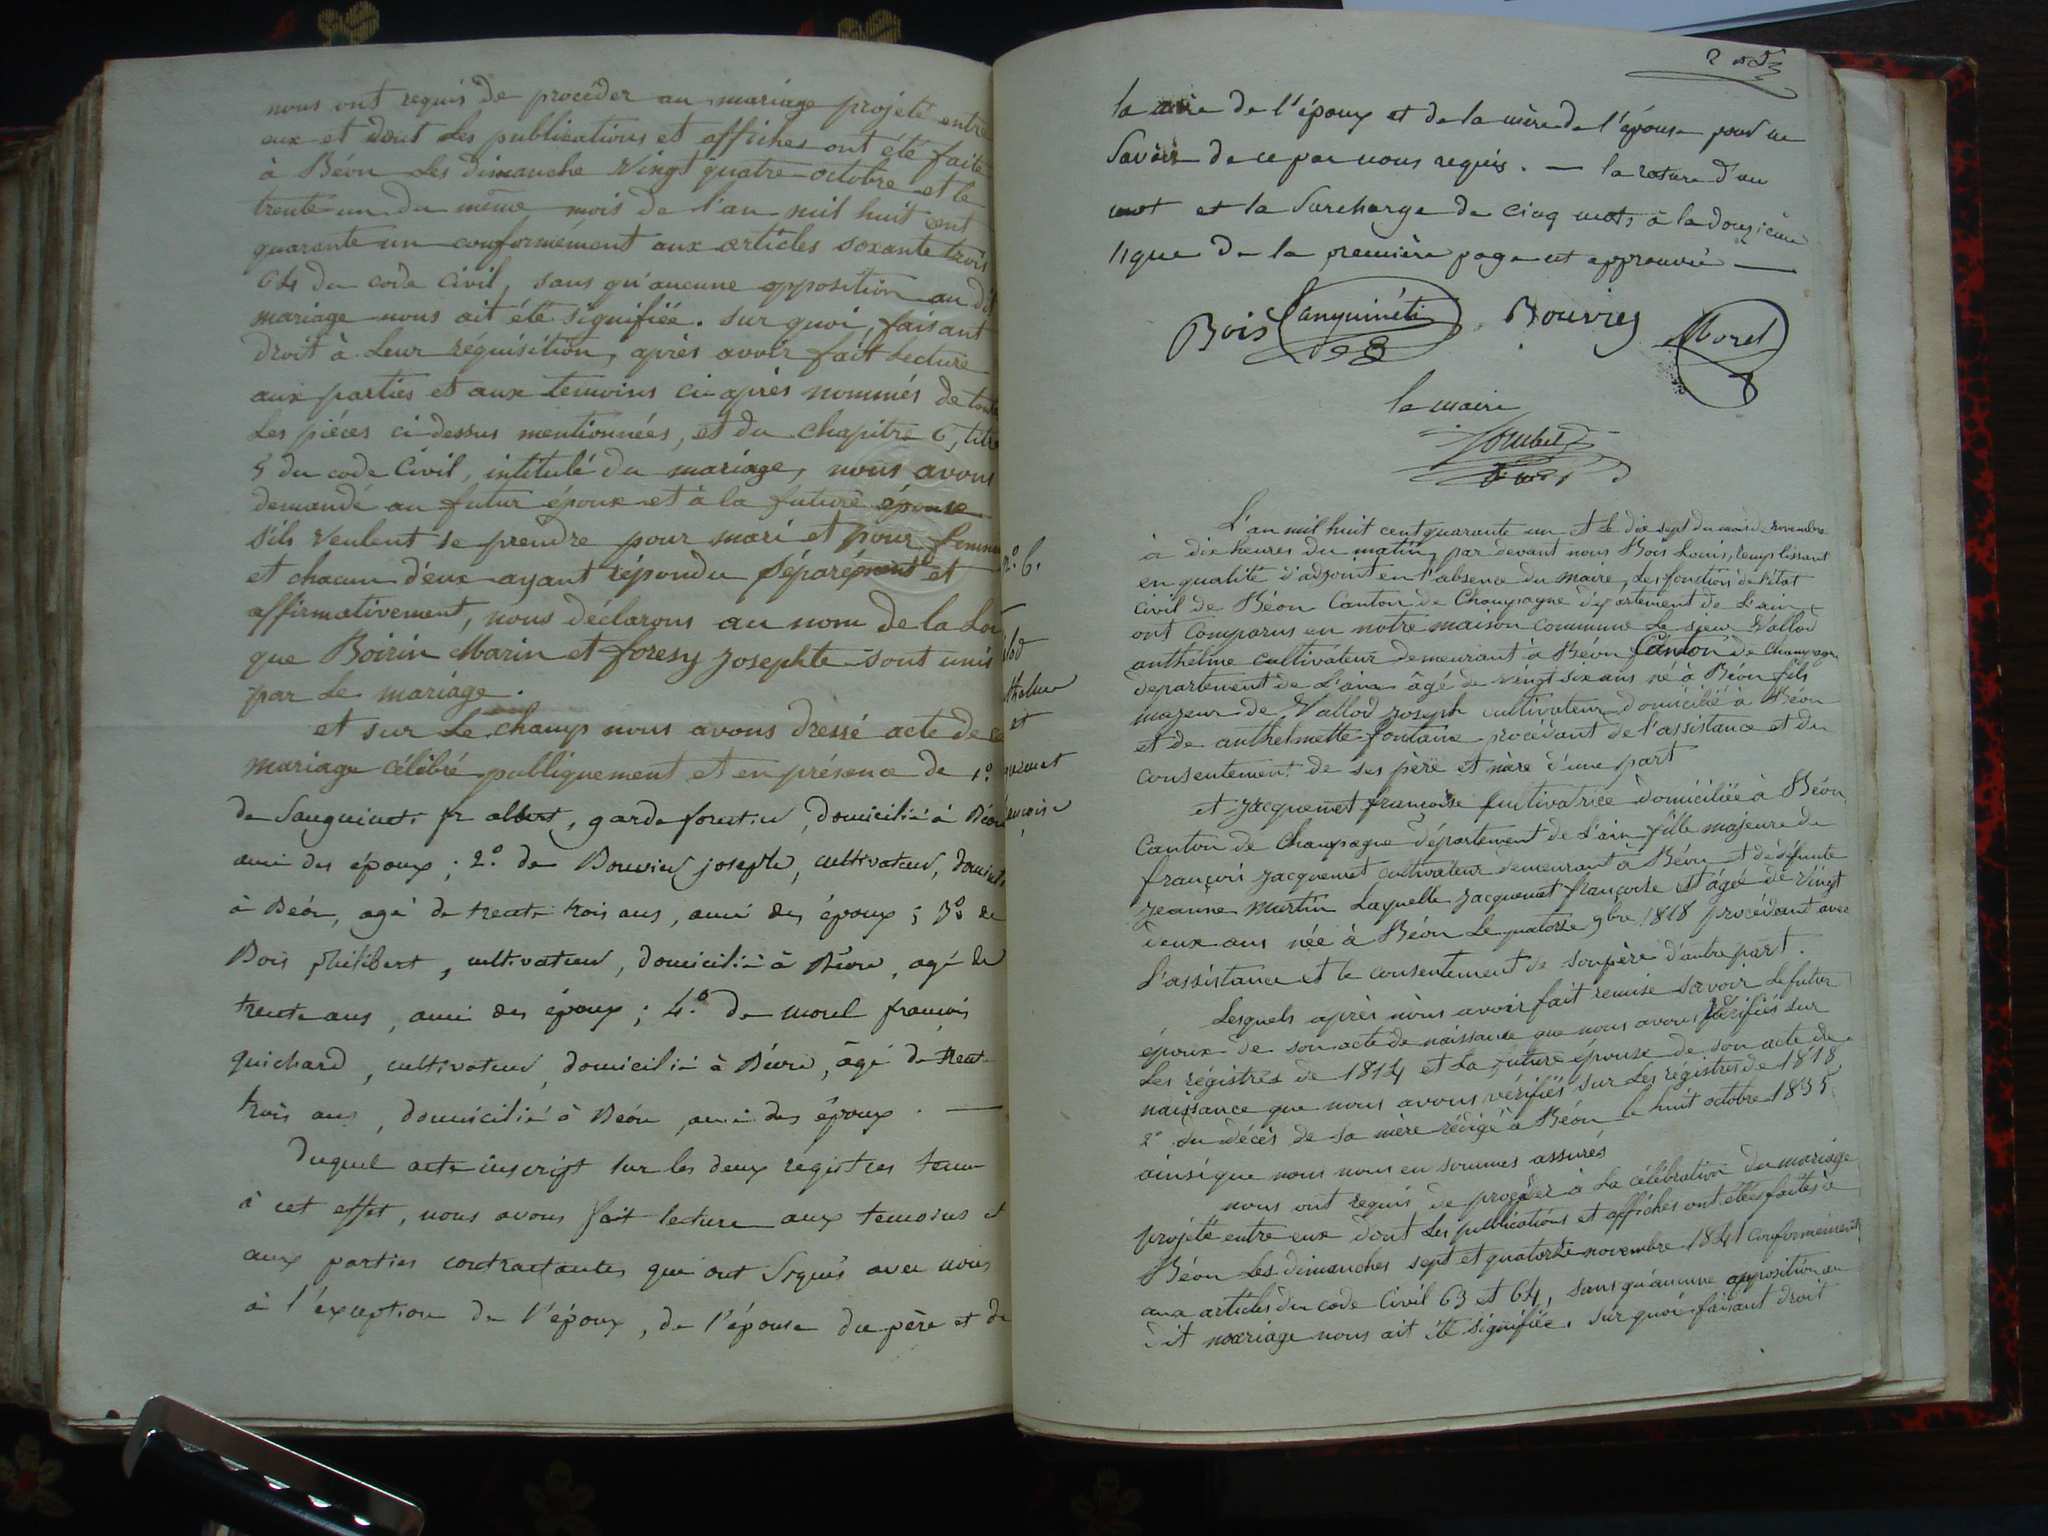 nous ont requis de procéder au mariage projeté entre
eux et dont les publications et affiches ont été faite
à Béon les dimanche vingt quatre octobre et le
trente un du même mois de l'an mil huit cent
quarante un conformément aux articles soxante trois
64 du code civil, sans qu'aucune opposition au dit
mariage nous ait été signifiée. sur quoi, faisant
droit à leur réquisition, après avoir fait lecture
aux parties et aux temoins ci-après nommés de toute
les pièces ci dessus mentionnées, et du chapitre 6, titre
5 du code civil, intitulé du mariage, nous avons
demandé au futur époux et à la future épouse
s'ils veulent se prendre pour mari et pour femme
et chacun d'eux ayant répondu séparément et
affirmativement, nous déclarons au nom de la Loi
que Boirin Marin et foresy Josephte sont unis
par le mariage.
et sur le champ nous avons dressé acte de ce
mariage célébré publiquement et en présence de 1.º
de Sanguineti albert, garde forestier, domicilié à Béon
ami des époux ; 2.º de Bouvier joseph, cultivateur, domicilié
à Béon, agé de trente trois ans, ami des époux ; 3.º de
Bois philibert, cultivateur, domicilié à Béon, agé de
trente ans, ami des époux ; 4.º de morel françois
guichard, cultivateur, domicilié à Béon, âgé de trente
trois ans, domicilié à Béon, ami des époux . —
Duquel acte inscript sur les deux registres tenu
à cet effet, nous avons fait lecture aux temoins et
aux parties contractantes qui ont signés avec nous
à l'exception de l'époux, de l'épouse du père et de
la mère de l'époux et de la mère de l'épouse pour ne
savoir de ce par nous requis. — la rature d'un
mot et la surcharge de cinq mots à la douzième
ligne de la première page est approuvé —
Bois Sanguinéti Bouvier Morel
le maire
L'an mil huit cent quarante un et le dix sept du mois de novembre
à dix heures du matin, par devant nous Bois Louis, remplissant
en qualité d'adjoint en l'absence du maire, les fonctions de l'état
civil de Béon Canton de Champagne département de L'ain
ont comparus en notre maison commune le sieur Vallod
anthelme cultivateur demeurant à Béon Canton de Champagne
departement de L'ain âgé de vingt six ans né à Béon fils
majeur de Vallod joseph cultivateur domicilié à Béon
et de anthelmette fontaine procédant de l'assistance et du
consentement de ses père et mère d'une part
et Jacquemet françoise cultivatrice domiciliée à Béon
Canton de Champagne département de L'ain fille majeure de
françois Jacquemet cultivateur demeurant à Béon et de défunte
Jeanne Martin Laquelle Jacquemet françoise est âgée de vingt
deux ans née à Béon le quatorze 9bre 1818 procédant avec
l'assistance et le consentement de son père d'autre part.
Lesquels après nous avoir fait remise savoir le futur
époux de son acte de naissance que nous avons vérifiés sur
les régistres de 1814 et la future épouse de son acte de
naissance que nous avons vérifiés sur les registres de 1818
2º du décès de sa mère rédigé à Béon le huit octobre 1835
ainsi que nous nous en sommes assurés
nous ont requis de procéder à la célébration du mariage
projeté entre eux dont les publications et affiches ont étées faites à
Béon les dimanches sept et quatorze novembre 1841 conformément
aux articles du code civil 63 et 64, sans qu'aucune opposition au
dit mariage nous ait été signifiée. sur quoi faisant droit